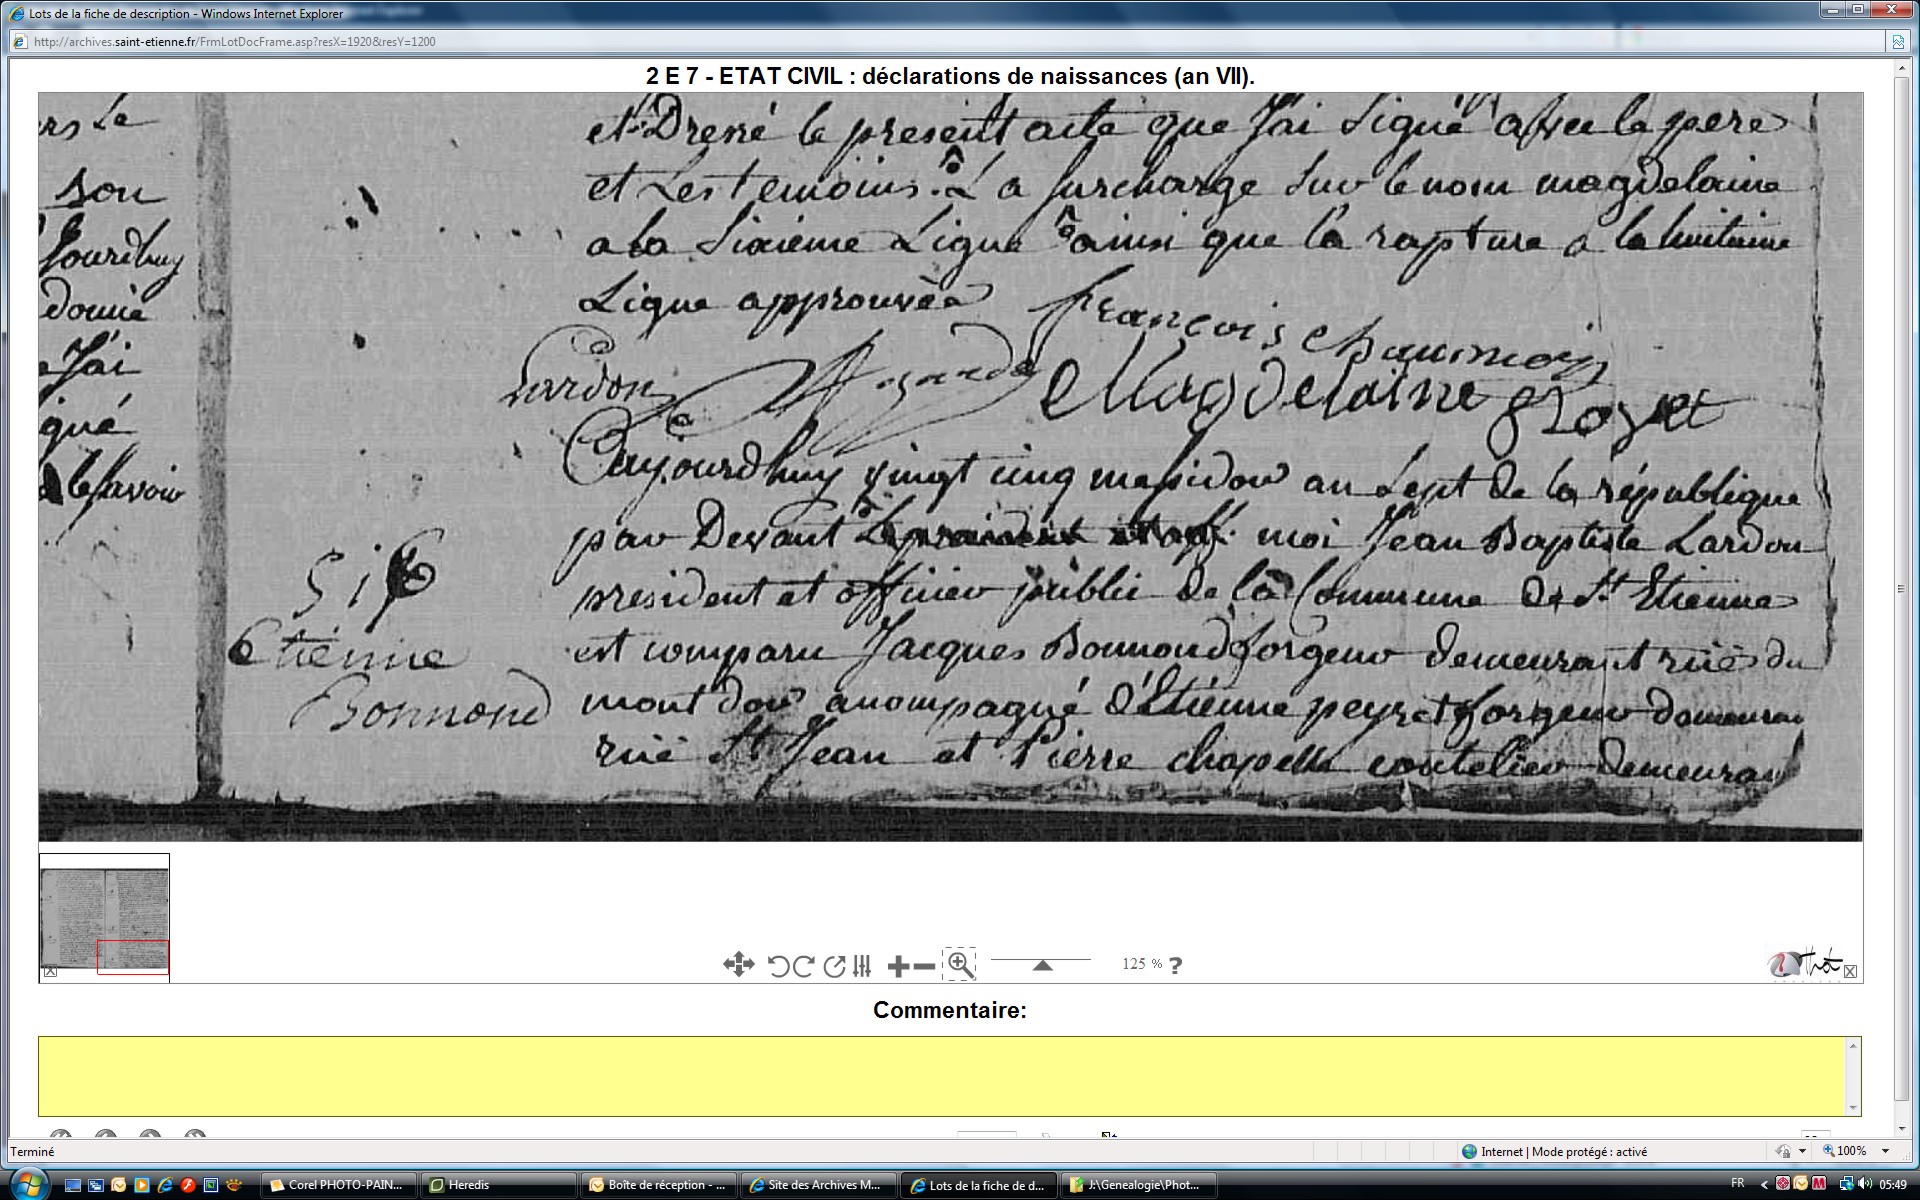 Lots de la fiche de description - Windows Internet Explorer
http://archives.saint-etienne.fr/FrmLotDocFrame.asp?resX=1920&resY=1200
2 E 7 - ETAT CIVIL : déclarations de naissances (an VII).
ers Le
son
jourdhuy
donné
J'ai
gné
le savoir
et Dressé le present acte que J'ai Signé avec le pere
et Les temoins. La surcharge Sur le nom magdelaine
a la Sixieme Ligne ainsi que la rapture a la huitieme
Ligne approuvée
françois chaumon
Lardon
Magdelaine Royet
Caujourdhuy vingt cinq mesidor an Sept de la république
par Devant moi Jean Baptiste Lardon
president et officier public de la Commune de St. Etienne
est comparu Jacques Bonnond forgeur demeurant ruë du
mont dor acompagné d'Etiénne peyret forgeur demeuran
ruë St Jean et Pierre chapelle coutelier demeuran
516
Etiénne
Bonnond
125 % ?
Thot
Commentaire:
Terminé
Internet | Mode protégé : activé
100%
Corel PHOTO-PAIN...
Heredis
Boîte de réception - ...
Site des Archives M...
Lots de la fiche de d...
J:\Genealogie\Phot...
FR
05:49